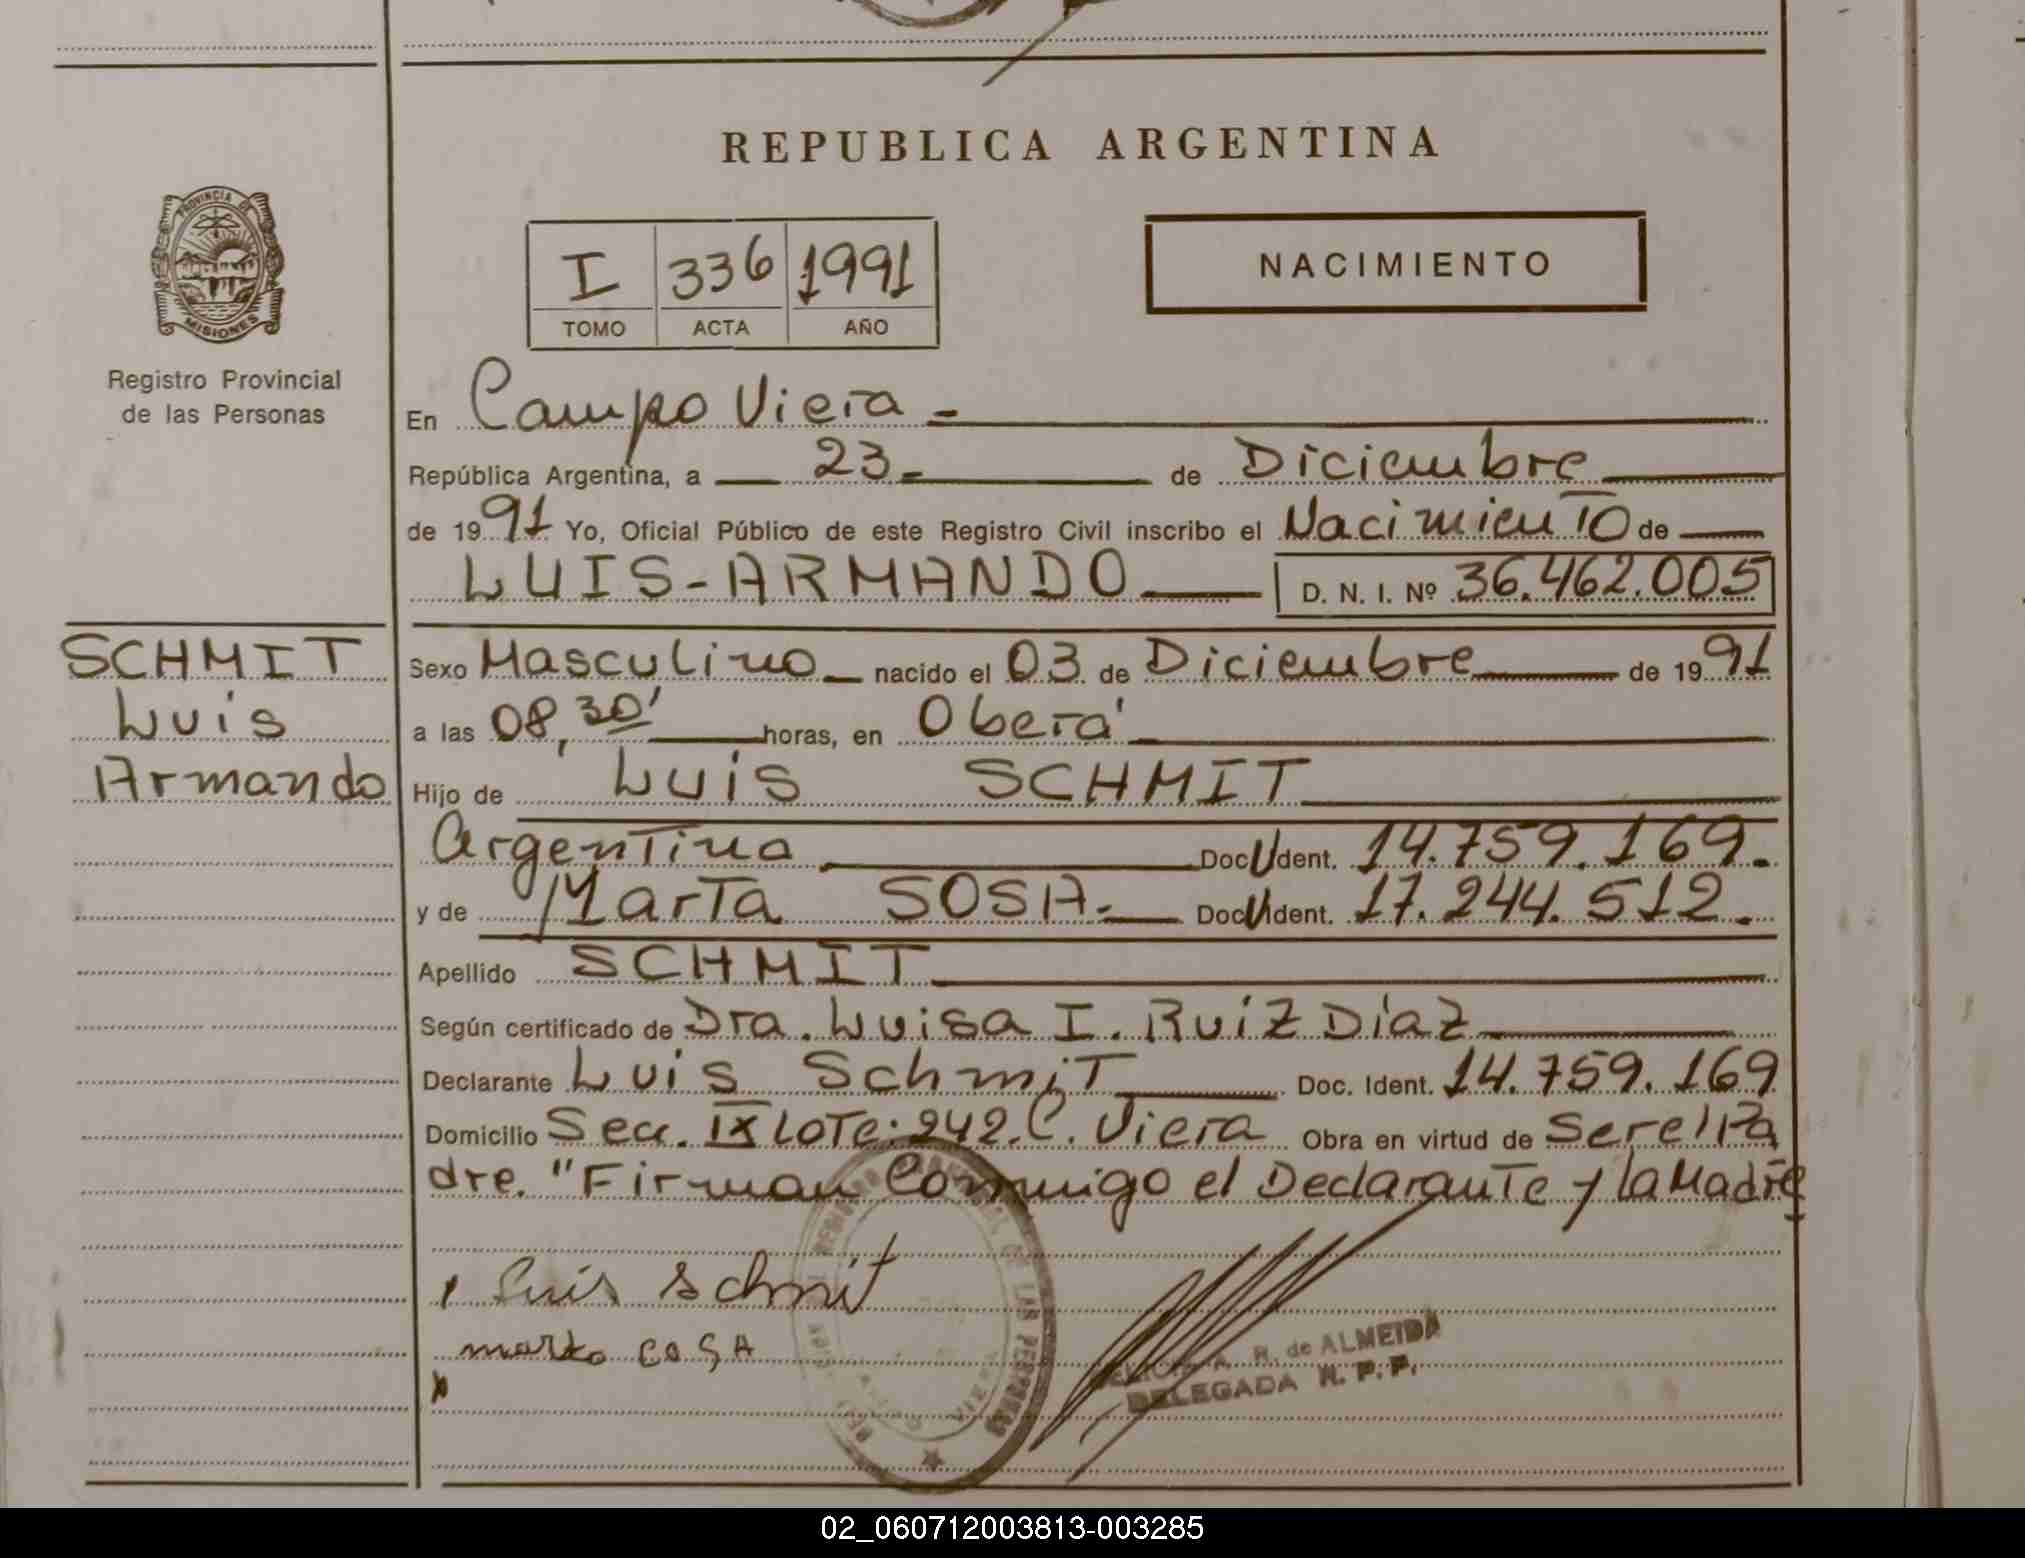 REPUBLICA ARGENTINA
PROVINCIA DE
MISIONES
Registro Provincial
de las Personas
I 336 1991
TOMO ACTA AÑO
NACIMIENTO
En Campo Viera
República Argentina, a 23 de Diciembre
de 1991 Yo, Oficial Público de este Registro Civil inscribo el Nacimiento de
LUIS-ARMANDO D. N. I. Nº 36.462.005
SCHMIT
Luis
Armando
Sexo Masculino nacido el 03 de Diciembre de 1991
a las 08,30' horas, en Oberá
Hijo de Luis SCHMIT
Argentino Doc. Ident. 14.759.169.
y de Marta SOSA.- Doc. Ident. 17.244.512.
Apellido SCHMIT
Según certificado de Dra. Luisa I. Ruiz Díaz
Declarante Luis Schmit Doc. Ident. 14.759.169
Domicilio Secc. IX Lote: 242. C. Viera Obra en virtud de Ser el Pa
dre. "Firman Conmigo el Declarante y la Madre
Luis Schmit
marta COSA
R. de ALMEIDA
DELEGADA R. P. P.
02_060712003813-003285